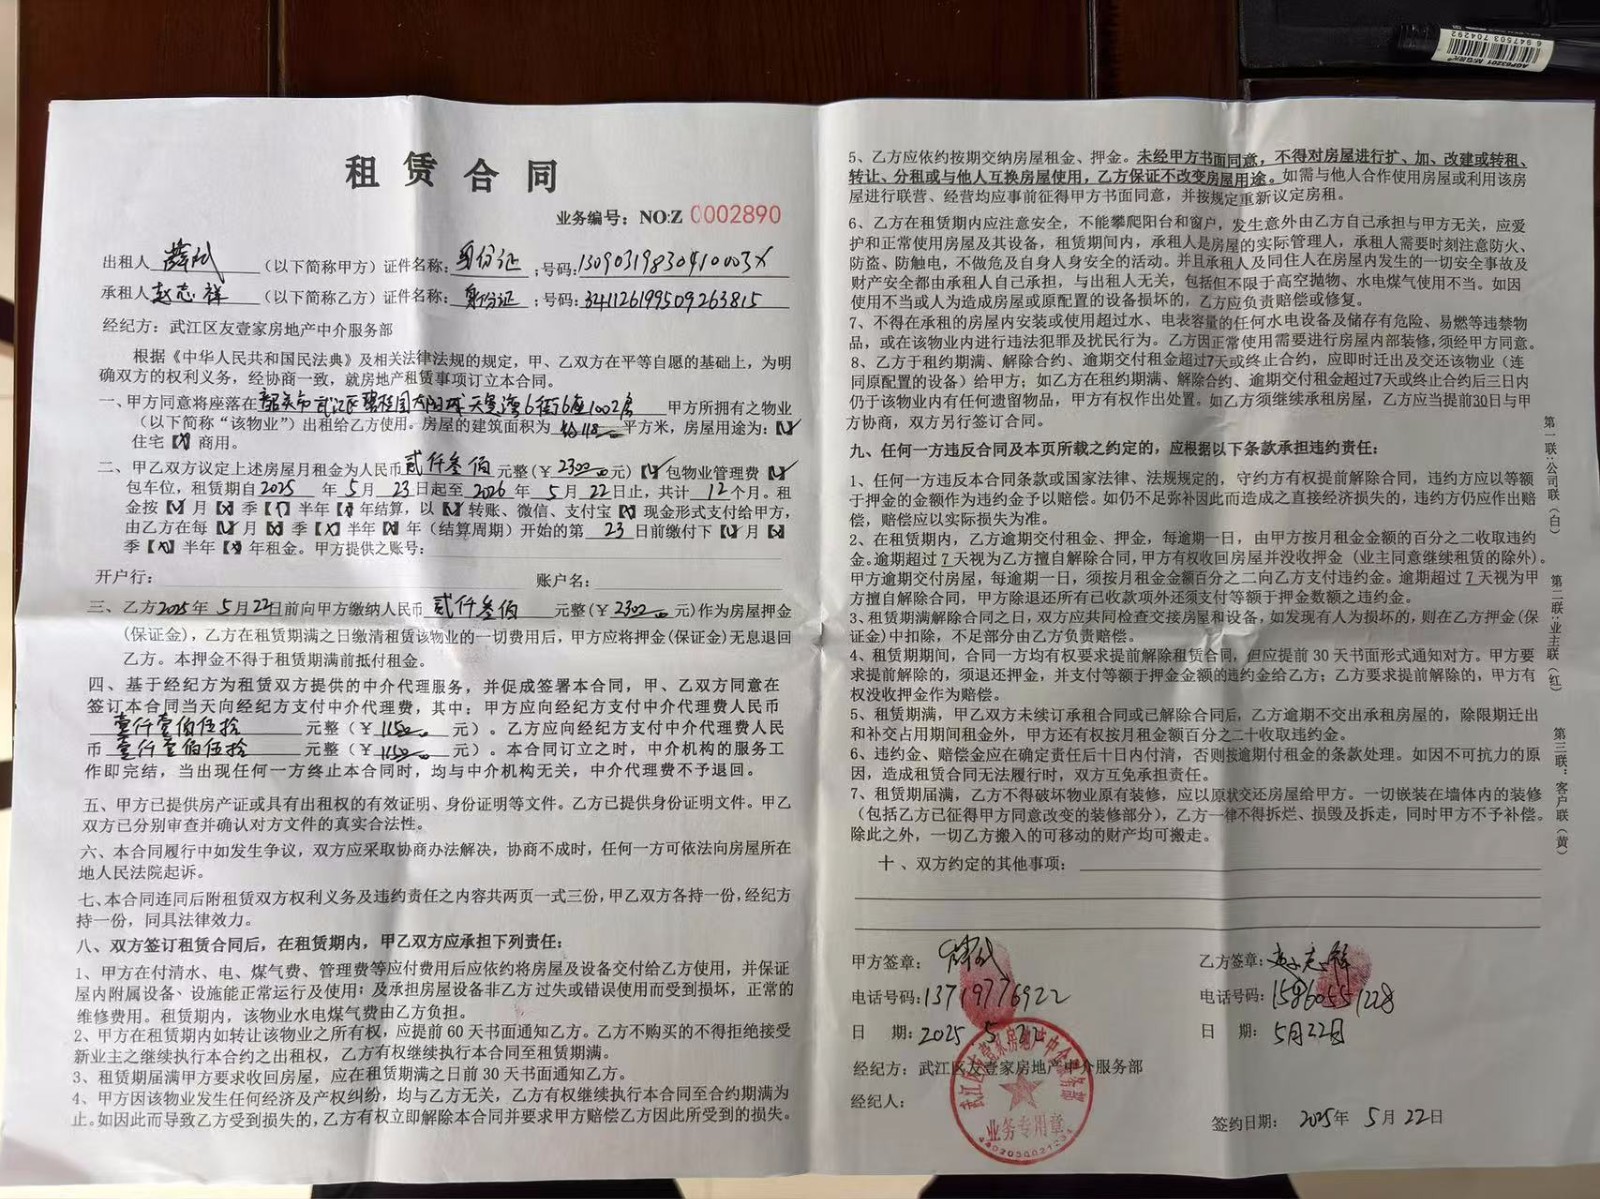 租赁合同
业务编号：NO:Z 0002890
出租人 薛斌 （以下简称甲方）证件名称：身份证；号码：13090319830410003X
承租人 赵志祥 （以下简称乙方）证件名称：身份证；号码：341126199509263815
经纪方：武江区友壹家房地产中介服务部
根据《中华人民共和国民法典》及相关法律法规的规定，甲、乙双方在平等自愿的基础上，为明
确双方的权利义务，经协商一致，就房地产租赁事项订立本合同。
一、甲方同意将座落在韶关市武江区碧桂园太阳城天玺湾6街6座1002房 甲方所拥有之物业
（以下简称“该物业”）出租给乙方使用。房屋的建筑面积为 约118 平方米，房屋用途为：【✓】
住宅【X】商用。
二、甲乙双方议定上述房屋月租金为人民币贰仟叁佰 元整（￥2300元）【✓】包物业管理费【✓】
包车位，租赁期自2025年5月23日起至2026年5月22日止，共计12个月。租
金按【✓】月【X】季【X】半年【X】年结算，以【✓】转账、微信、支付宝【X】现金形式支付给甲方，
由乙方在每【✓】月【X】季【X】半年【X】年（结算周期）开始的第 23 日前缴付下【✓】月【X】
季【X】半年【X】年租金。甲方提供之账号：
开户行： 账户名：
三、乙方2025年5月22日前向甲方缴纳人民币 贰仟叁佰 元整（￥2300元）作为房屋押金
（保证金），乙方在租赁期满之日缴清租赁该物业的一切费用后，甲方应将押金（保证金）无息退回
乙方。本押金不得于租赁期满前抵付租金。
四、基于经纪方为租赁双方提供的中介代理服务，并促成签署本合同，甲、乙双方同意在
签订本合同当天向经纪方支付中介代理费，其中：甲方应向经纪方支付中介代理费人民币
壹仟壹佰伍拾 元整（￥1150元）。乙方应向经纪方支付中介代理费人民
币 壹仟壹佰伍拾 元整（￥1150元）。本合同订立之时，中介机构的服务工
作即完结，当出现任何一方终止本合同时，均与中介机构无关，中介代理费不予退回。
五、甲方已提供房产证或具有出租权的有效证明、身份证明等文件。乙方已提供身份证明文件。甲乙
双方已分别审查并确认对方文件的真实合法性。
六、本合同履行中如发生争议，双方应采取协商办法解决，协商不成时，任何一方可依法向房屋所在
地人民法院起诉。
七、本合同连同后附租赁双方权利义务及违约责任之内容共两页一式三份，甲乙双方各持一份，经纪方
持一份，同具法律效力。
八、双方签订租赁合同后，在租赁期内，甲乙双方应承担下列责任：
1、甲方在付清水、电、煤气费、管理费等应付费用后应依约将房屋及设备交付给乙方使用，并保证
屋内附属设备、设施能正常运行及使用；及承担房屋设备非乙方过失或错误使用而受到损坏，正常的
维修费用。租赁期内，该物业水电煤气费由乙方负担。
2、甲方在租赁期内如转让该物业之所有权，应提前60天书面通知乙方。乙方不购买的不得拒绝接受
新业主之继续执行本合约之出租权，乙方有权继续执行本合同至租赁期满。
3、租赁期届满甲方要求收回房屋，应在租赁期满之日前30天书面通知乙方。
4、甲方因该物业发生任何经济及产权纠纷，均与乙方无关，乙方有权继续执行本合同至合约期满为
止。如因此而导致乙方受到损失的，乙方有权立即解除本合同并要求甲方赔偿乙方因此所受到的损失。
5、乙方应依约按期交纳房屋租金、押金。未经甲方书面同意，不得对房屋进行扩、加、改建或转租、
转让、分租或与他人互换房屋使用，乙方保证不改变房屋用途。如需与他人合作使用房屋或利用该房
屋进行联营、经营均应事前征得甲方书面同意，并按规定重新议定房租。
6、乙方在租赁期内应注意安全，不能攀爬阳台和窗户，发生意外由乙方自己承担与甲方无关，应爱
护和正常使用房屋及其设备，租赁期间内，承租人是房屋的实际管理人，承租人需要时刻注意防火、
防盗、防触电，不做危及自身人身安全的活动。并且承租人及同住人在房屋内发生的一切安全事故及
财产安全都由承租人自己承担，与出租人无关，包括但不限于高空抛物、水电煤气使用不当。如因
使用不当或人为造成房屋或原配置的设备损坏的，乙方应负责赔偿或修复。
7、不得在承租的房屋内安装或使用超过水、电表容量的任何水电设备及储存有危险、易燃等违禁物
品，或在该物业内进行违法犯罪及扰民行为。乙方因正常使用需要进行房屋内部装修，须经甲方同意。
8、乙方于租约期满、解除合约、逾期交付租金超过7天或终止合约，应即时迁出及交还该物业（连
同原配置的设备）给甲方；如乙方在租约期满、解除合约、逾期交付租金超过7天或终止合约后三日内
仍于该物业内有任何遗留物品，甲方有权作出处置。如乙方须继续承租房屋，乙方应当提前30日与甲
方协商，双方另行签订合同。
九、任何一方违反合同及本页所载之约定的，应根据以下条款承担违约责任：
1、任何一方违反本合同条款或国家法律、法规规定的，守约方有权提前解除合同，违约方应以等额
于押金的金额作为违约金予以赔偿。如仍不足弥补因此而造成之直接经济损失的，违约方仍应作出赔
偿，赔偿应以实际损失为准。
2、在租赁期内，乙方逾期交付租金、押金，每逾期一日，由甲方按月租金金额的百分之二收取违约
金。逾期超过 7 天视为乙方擅自解除合同，甲方有权收回房屋并没收押金（业主同意继续租赁的除外）。
甲方逾期交付房屋，每逾期一日，须按月租金金额百分之二向乙方支付违约金。逾期超过 7 天视为甲
方擅自解除合同，甲方除退还所有已收款项外还须支付等额于押金数额之违约金。
3、租赁期满解除合同之日，双方应共同检查交接房屋和设备，如发现有人为损坏的，则在乙方押金（保
证金）中扣除，不足部分由乙方负责赔偿。
4、租赁期期间，合同一方均有权要求提前解除租赁合同，但应提前 30 天书面形式通知对方。甲方要
求提前解除的，须退还押金，并支付等额于押金金额的违约金给乙方；乙方要求提前解除的，甲方有
权没收押金作为赔偿。
5、租赁期满，甲乙双方未续订承租合同或已解除合同后，乙方逾期不交出承租房屋的，除限期迁出
和补交占用期间租金外，甲方还有权按月租金额百分之二十收取违约金。
6、违约金、赔偿金应在确定责任后十日内付清，否则按逾期付租金的条款处理。如因不可抗力的原
因，造成租赁合同无法履行时，双方互免承担责任。
7、租赁期届满，乙方不得破坏物业原有装修，应以原状交还房屋给甲方。一切嵌装在墙体内的装修
（包括乙方已征得甲方同意改变的装修部分），乙方一律不得拆烂、损毁及拆走，同时甲方不予补偿。
除此之外，一切乙方搬入的可移动的财产均可搬走。
十、双方约定的其他事项：
甲方签章：薛斌 乙方签章：赵志祥
电话号码：13719776922 电话号码：15960551228
日 期：2025 5 22 日 期：5月22日
经纪方：武江区友壹家房地产中介服务部
经纪人：
签约日期：2025年5月22日
武江区友壹家房地产中介服务部
业务专用章
第一联：公司联（白） 第二联：业主联（红） 第三联：客户联（黄）
6 947503 704292